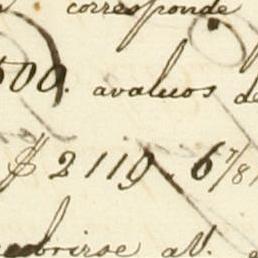 corresponde
500. avaluos de
$ 2119. 6 7/8
cobrirse al.